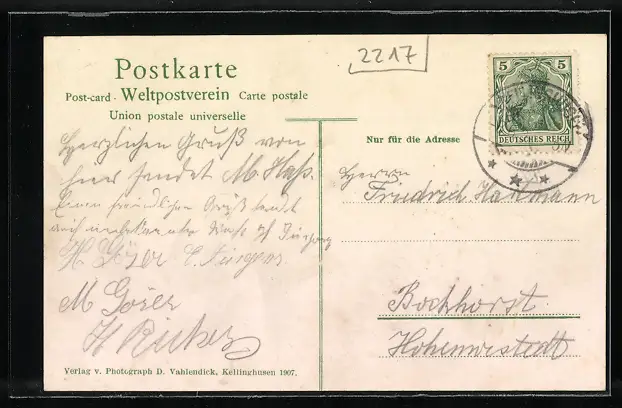 2217
Postkarte
Post-card - Weltpostverein Carte postale
Union postale universelle
5 5
DEUTSCHES REICH
Nur für die Adresse
Herzlichen Gruß von
hier sendet M. Haß.
Einen freundlichen Gruß sendet
auch
H. Göser C. Jürgens
M Göser
H Ricker
Herrn
Friedrich
Bockhorst
Hohenwestedt
Verlag v. Photograph D. Vahlendick, Kellinghusen 1907.